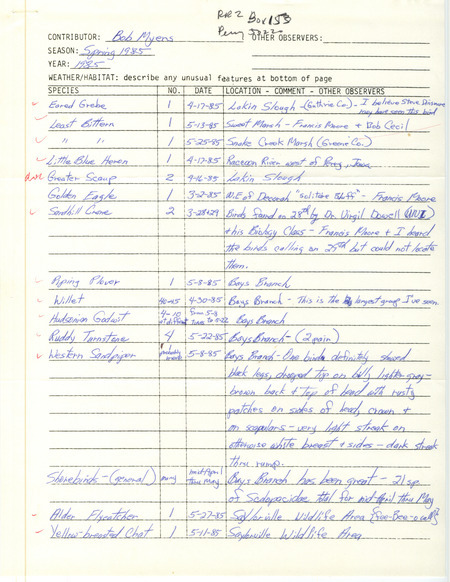 RR 2 Box 153
Perry 50220
CONTRIBUTOR: Bob Myers OTHER OBSERVERS:
SEASON: Spring 1985
YEAR: 1985
WEATHER/HABITAT: describe any unusual features at bottom of page
SPECIES NO. DATE LOCATION - COMMENT - OTHER OBSERVERS
Eared Grebe 1 4-17-85 Lakin Slough - (Guthrie Co.) - I believe Steve Dinsmore may have seen this bird
Least Bittern 1 5-13-85 Sweet Marsh - Francis Moore & Bob Cecil
" " 1 5-25-85 Snake Creek Marsh (Greene Co.)
Little Blue Heron 1 4-17-85 Raccoon River west of Perry, Iowa
Greater Scaup 2 4-16-85 Lakin Slough
Golden Eagle 1 3-2-85 N.E. of Decorah "solitary bluff" - Francis Moore
Sandhill Crane 2 3-28+29 Birds found on 28th by Dr. Virgil Dowell (UNI)
+ his Biology Class - Francis Moore & I heard
the birds calling on 29th but could not locate
them.
Piping Plover 1 5-8-85 Bays Branch
Willet 40-45 4-30-85 Bays Branch - This is the largest group I've seen.
Hudsonian Godwit 4-10 from 5-8 to 5-22 Bays Branch
Ruddy Turnstone 4 5-22-85 Bays Branch - (2 pair)
Western Sandpiper probably 5-8-85 Bays Branch - One bird definitely showed
black legs, drooped tip on bill, lighter gray-
brown back & top of head with rusty
patches on sides of head, crown &
on scapulars - very light streak on
otherwise white breast & sides - dark streak
thru rump.
Shorebirds - (general) many mid April thru May Bays Branch has been great - 21 sp.
of Scolopacidae total for mid April thru May
Alder Flycatcher 1 5-27-85 Saylorville Wildlife Area {Fee-Bee-o call}
Yellow-breasted Chat 1 5-11-85 Saylorville Wildlife Area